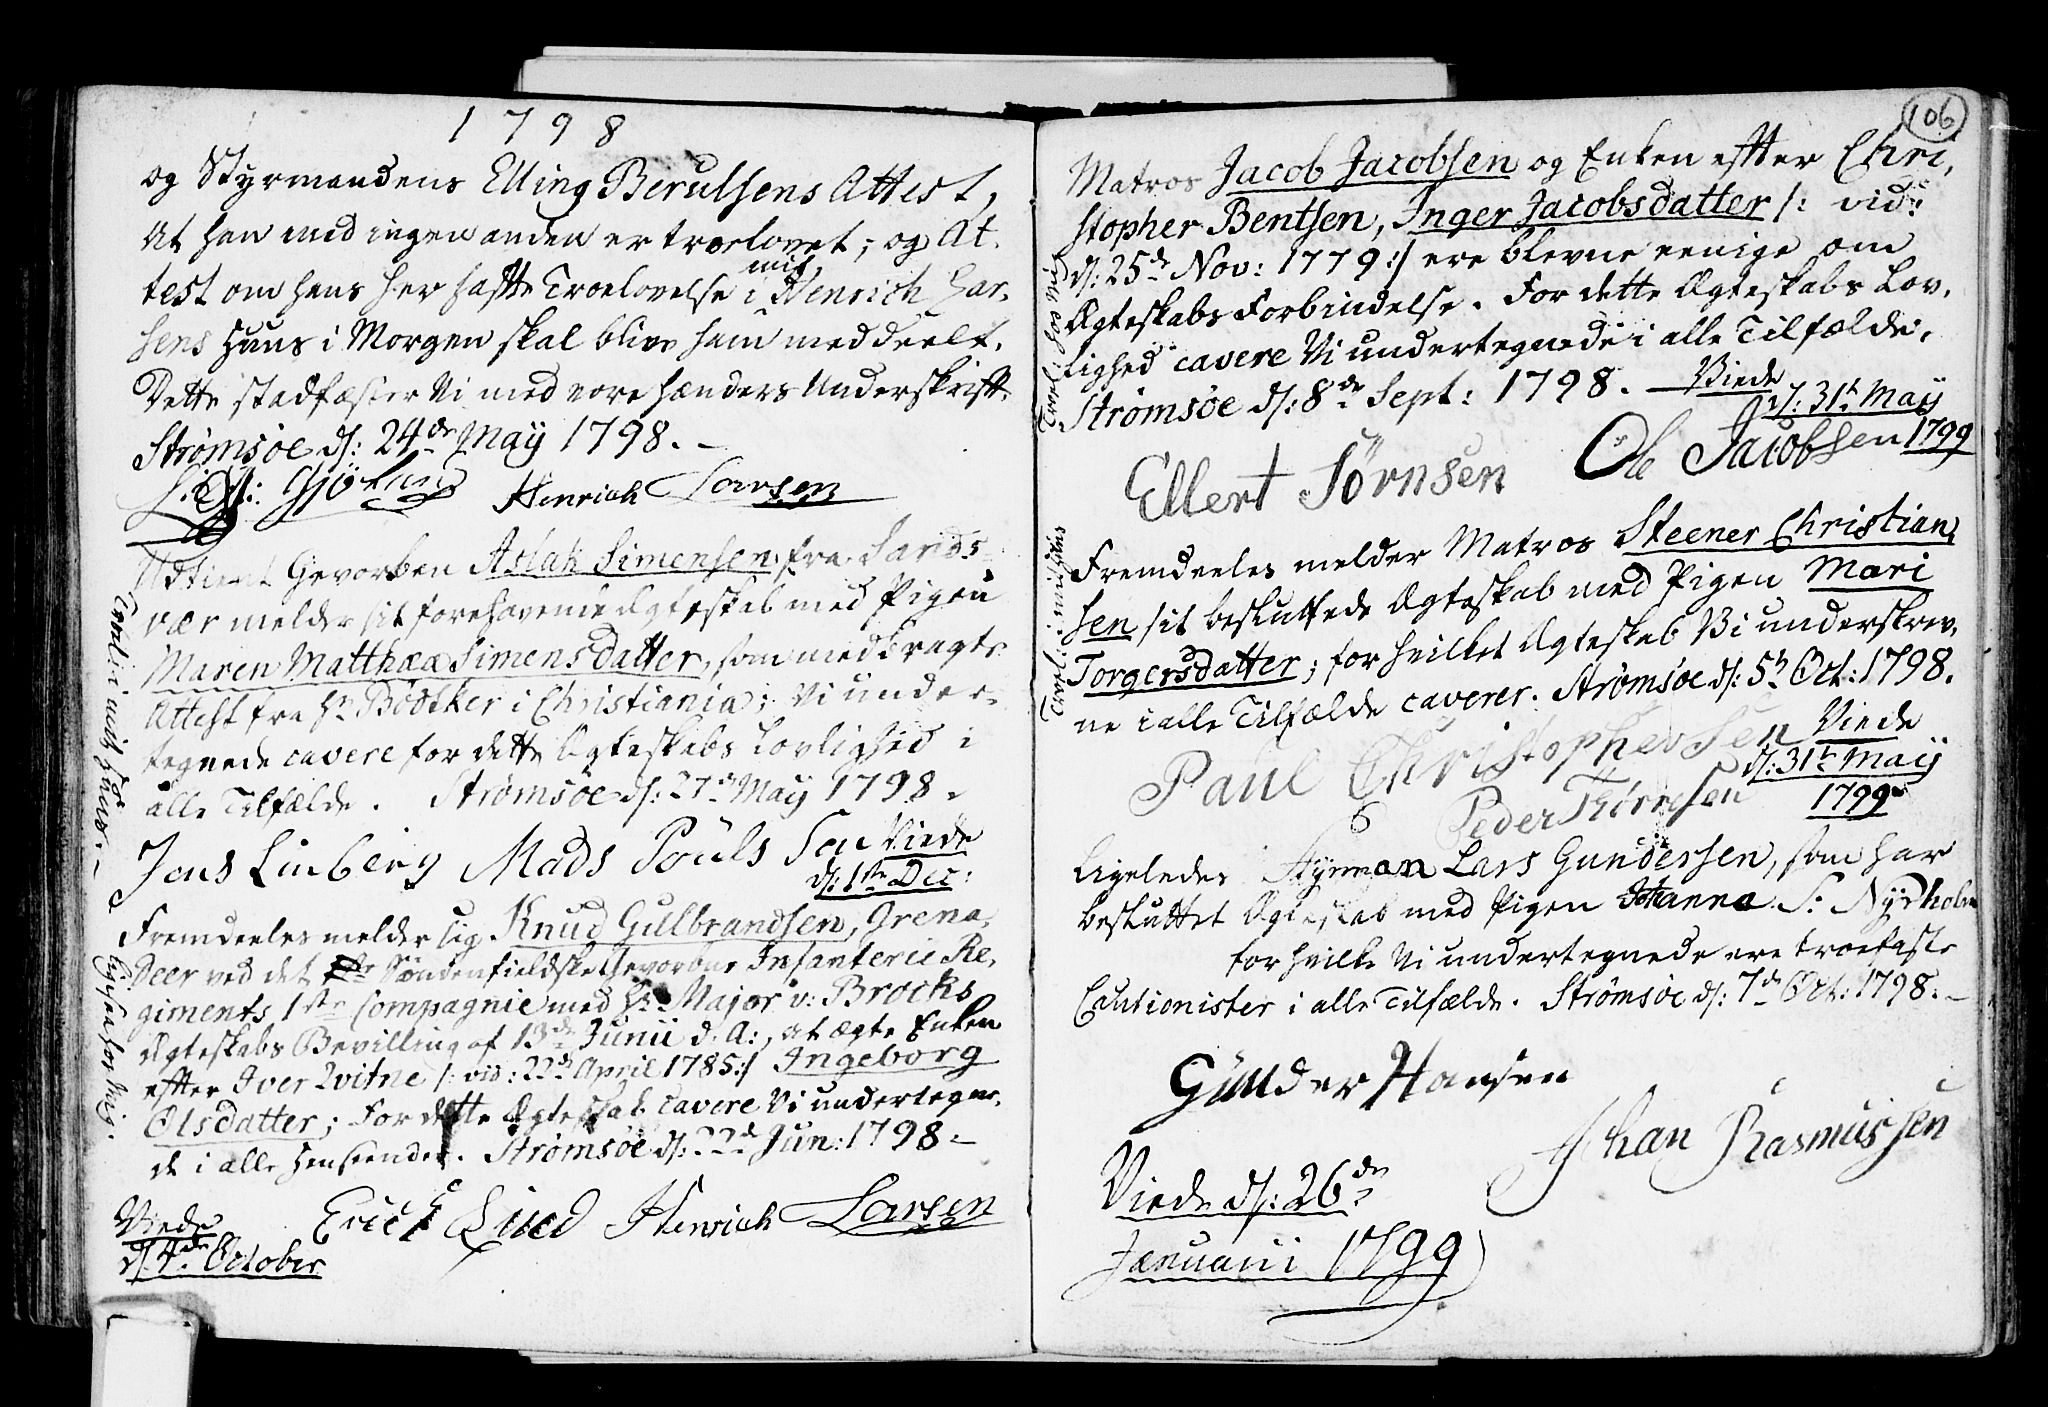 1798
og Styrmandens Elling Berulsens Attest,
at han med ingen anden er troelovet; og At,
test om hans her hafte Troelovelse i mit Henrich Lar,
sens Huus i Morgen skal blive ham meddeelt.
Dette stadfæster Vi med vore Hænders Underskrift.
Strømsøe d: 24de May 1798.
Henrich Larsen
Gevorben Aslak Simensen fra Sands,
vær melder sit forehavende Ægteskab med Pigen
Maren Matthæa Simensdatter, som medbragte
Attest fra Hr Bödtker i Christiania; Vi under,
tegnede cavere for dette Ægteskabs Lovlighed i
alle Tilfælde. Strømsøe d: 27de May 1798.
Jens Linberg Mads Pouls Søn Viede
d: 1ste Dec:
Fremdeeles melder sig Knud Gulbrandsen, Grena,
deer ved det Søndenfieldske Gevorbne Infanterie Re,
giments 1ste Compagnie med Hr Major v: Brocks
Ægteskabs Bevilling af 13de Junii d. A:, at ægte Enken
efter Iver Qvitne /: vid: 22de April 1785 :/ Ingeborg
Olsdatter; For dette Ægteskab cavere Vi underteg,
de i alle Henseender. Strømsøe d: 22de Jun: 1798.
Erick Lued Henrich Larsen
Viede
d: 4de October
106
Matros Jacob Jacobsen og Enken efter Chri,
stopher Bentsen, Inger Jacobsdatter /: vid:
d: 25de Nov: 1779 :/ ere blevne eenige om
Ægteskabs Forbindelse. For dette Ægteskabs Lov,
lighed cavere Vi undertegnede i alle Tilfælde.
Strømsøe d: 8de Sept: 1798. Viede
d: 31te May
1799
Ellert Jørnsen Ole Jacobsen
Fremdeeles melder Matros Steener Christian,
sen sit besluttede Ægteskab med Pigen Mari
Torgersdatter; for hvilket Ægteskab Vi underskrev,
ne i alle Tilfælde caverer. Strømsøe d: 5te Oct: 1798.
Paul Christophersen Viede
d: 31te May
1799
Peder Thörresen
Ligeledes Styrman Lars Gundersen, som har
besluttet Ægteskab med Pigen Johanna S: Nyeholm
for hvilke Vi undertegnede ere troefaste
Cautionister i alle Tilfælde. Strømsøe d: 7de Oct: 1798.
Gunder Hansen
Johan Rasmussen
Viede d: 26de
Januarii 1799